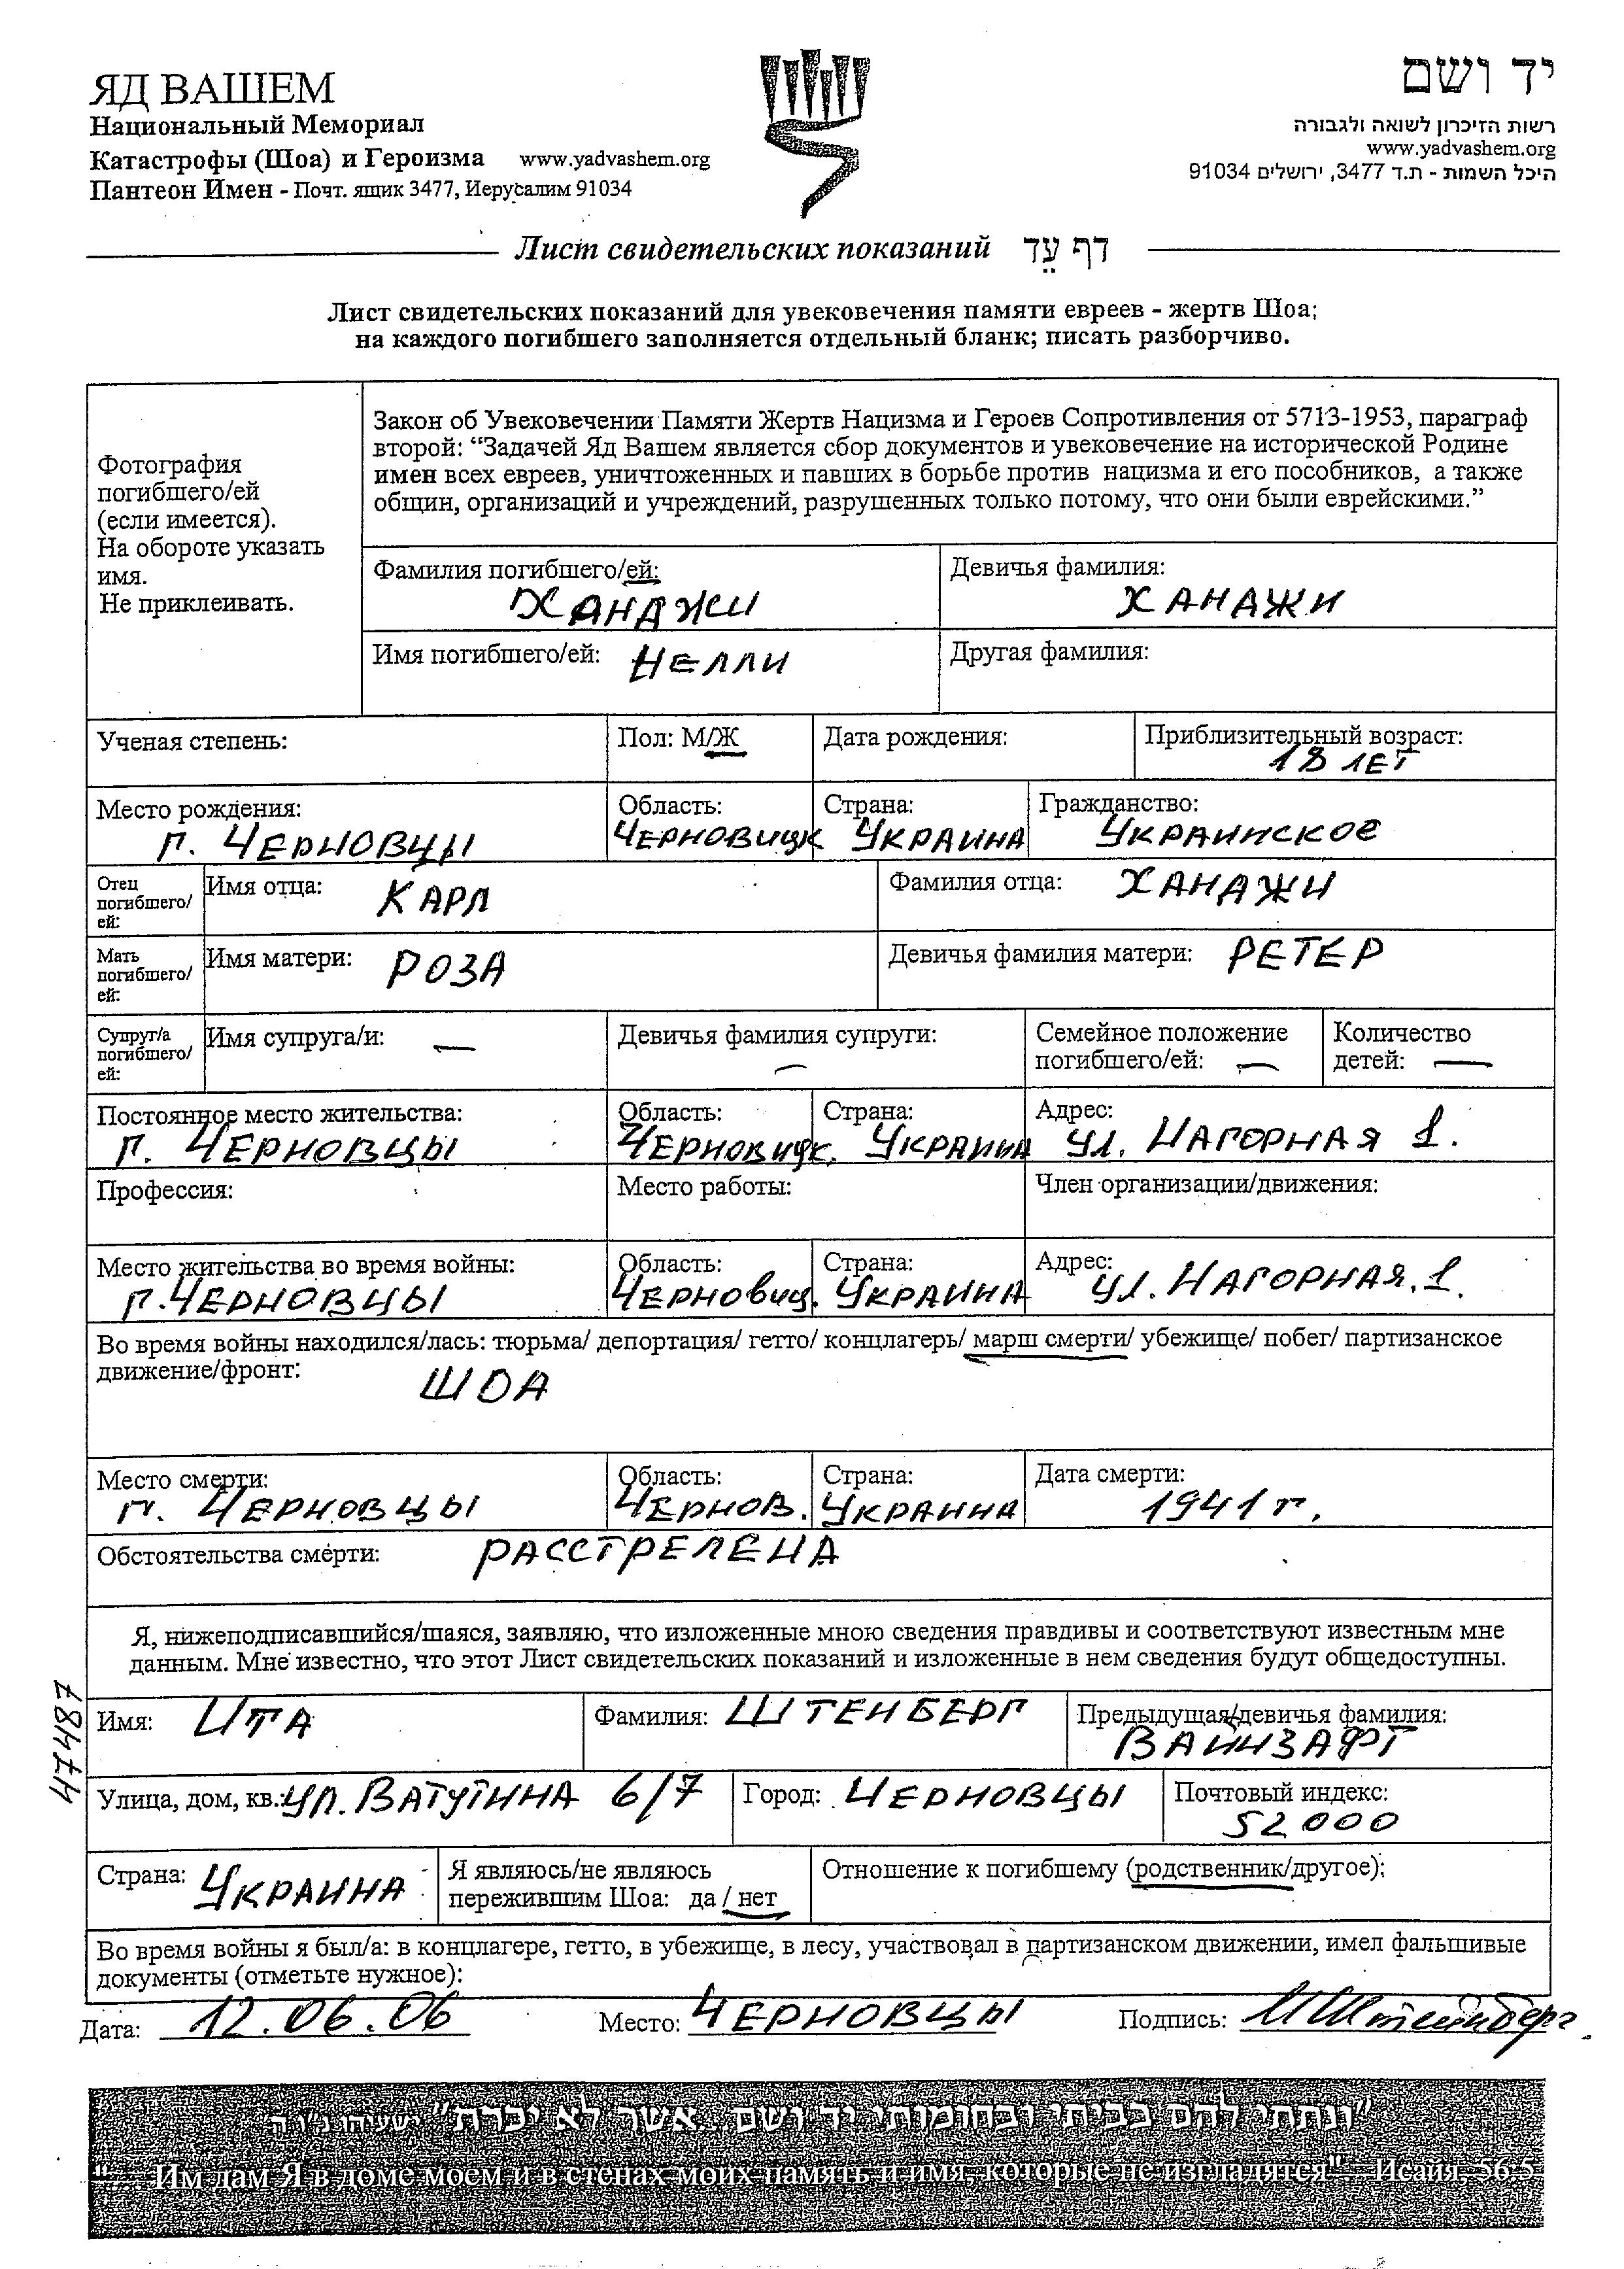 ЯД ВАШЕМ
Национальный Мемориал
Катастрофы (Шоа) и Героизма www.yadvashem.org
Пантеон Имен - Почт. ящик 3477, Иерусалим 91034
יד ושם
רשות הזיכרון לשואה ולגבורה
www.yadvashem.org
היכל השמות - ת.ד 3477, ירושלים 91034
Лист свидетельских показаний דף עֵד
Лист свидетельских показаний для увековечения памяти евреев - жертв Шоа;
на каждого погибшего заполняется отдельный бланк; писать разборчиво.
Фотография
погибшего/ей
(если имеется).
На обороте указать
имя.
Не приклеивать.
Закон об Увековечении Памяти Жертв Нацизма и Героев Сопротивления от 5713-1953, параграф
второй: “Задачей Яд Вашем является сбор документов и увековечение на исторической Родине
имен всех евреев, уничтоженных и павших в борьбе против нацизма и его пособников, а также
общин, организаций и учреждений, разрушенных только потому, что они были еврейскими.”
Фамилия погибшего/ей:
ХАНДЖИ
Девичья фамилия:
ХАНДЖИ
Имя погибшего/ей: НЕЛЛИ
Другая фамилия:
Ученая степень:
Пол: М/Ж
Дата рождения:
Приблизительный возраст:
18 ЛЕТ
Место рождения:
г. ЧЕРНОВЦЫ
Область:
ЧЕРНОВИЦК
Страна:
УКРАИНА
Гражданство:
УКРАИНСКОЕ
Отец
погибшего/
ей:
Имя отца: КАРЛ
Фамилия отца: ХАНДЖИ
Мать
погибшего/
ей:
Имя матери: РОЗА
Девичья фамилия матери: РЕТЕР
Супруг/а
погибшего/
ей:
Имя супруга/и: —
Девичья фамилия супруги:
—
Семейное положение
погибшего/ей: —
Количество
детей: —
Постоянное место жительства:
г. ЧЕРНОВЦЫ
Область:
ЧЕРНОВИЦК.
Страна:
УКРАИНА
Адрес:
УЛ. НАГОРНАЯ 1.
Профессия:
Место работы:
Член организации/движения:
Место жительства во время войны:
г. ЧЕРНОВЦЫ
Область:
ЧЕРНОВИЦ.
Страна:
УКРАИНА
Адрес:
УЛ. НАГОРНАЯ, 1.
Во время войны находился/лась: тюрьма/ депортация/ гетто/ концлагерь/ марш смерти/ убежище/ побег/ партизанское
движение/фронт:
ШОА
Место смерти:
г. ЧЕРНОВЦЫ
Область:
ЧЕРНОВ.
Страна:
УКРАИНА
Дата смерти:
1941 г.
Обстоятельства смерти: РАССТРЕЛЕНА
Я, нижеподписавшийся/шаяся, заявляю, что изложенные мною сведения правдивы и соответствуют известным мне
данным. Мне известно, что этот Лист свидетельских показаний и изложенные в нем сведения будут общедоступны.
Имя: ИТА
Фамилия: ШТЕНБЕРГ
Предыдущая/девичья фамилия:
ВАЙНЗАФТ
Улица, дом, кв.: УЛ. ВАТУТИНА 6/7
Город: ЧЕРНОВЦЫ
Почтовый индекс:
52000
Страна: УКРАИНА
Я являюсь/не являюсь
пережившим Шоа: да / нет
Отношение к погибшему (родственник/другое):
Во время войны я был/а: в концлагере, гетто, в убежище, в лесу, участвовал в партизанском движении, имел фальшивые
документы (отметьте нужное):
Дата: 12.06.06
Место: ЧЕРНОВЦЫ
Подпись: И Штейнберг
"ונתתי להם בביתי ובחומותי יד ושם... אשר לא יכרת" ישעיהו נו ה
"...Им дам Я в доме моем и в стенах моих память и имя, которые не изгладятся" Исайя, 56:5